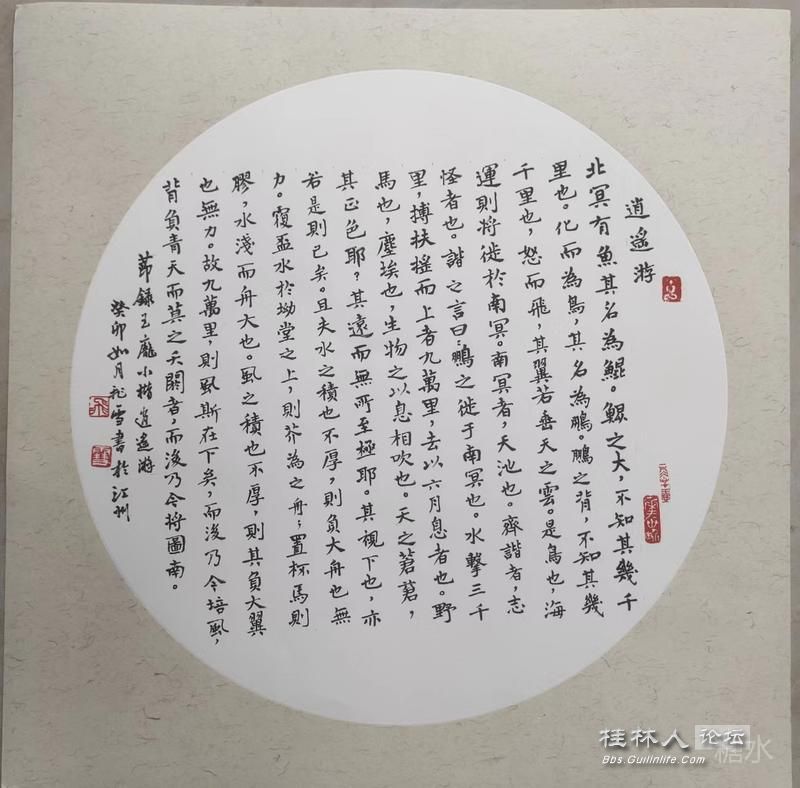 逍遙游
北冥有魚其名為鯤。鯤之大,不知其幾千
里也。化而為鳥,其名為鵬。鵬之背,不知其幾
千里也,怒而飛,其翼若垂天之雲。是鳥也,海
運則將徙於南冥。南冥者,天池也。齊諧者,志
怪者也。諧之言曰:鵬之徙于南冥也。水擊三千
里,搏扶摇而上者九萬里,去以六月息者也。野
馬也,塵埃也,生物之以息相吹也。天之蒼蒼,
其正色耶?其遠而無所至極耶。其視下也,亦
若是則已矣。且夫水之積也不厚,則負大舟也無
力。覆盃水於坳堂之上,則芥為之舟;置杯焉則
膠,水淺而舟大也。風之積也不厚,則其負大翼
也無力。故九萬里,則風斯在下矣,而後乃今培風,
背負青天而莫之夭閼者,而後乃今將圖南。
節録王龐小楷逍遥游
癸卯如月飛雪書於江州
飛
雪
桂林人论坛
Bbs.Guilinlife.Com
糖水